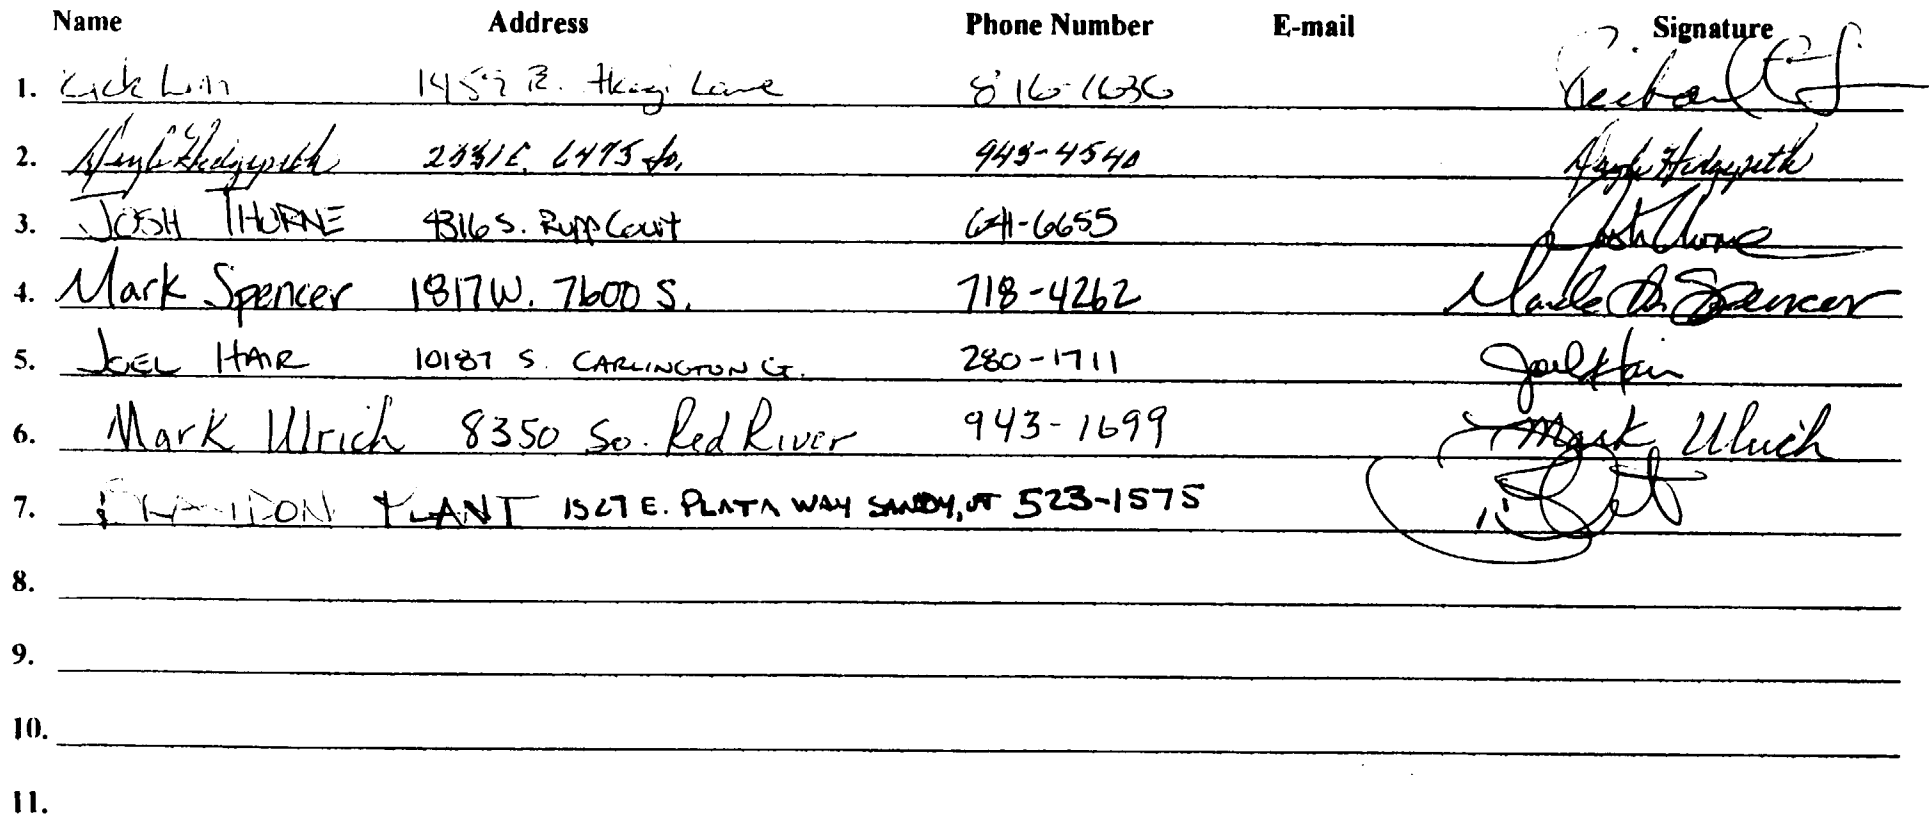 Name Address Phone Number E-mail Signature
1. Lane 816-1636 Richard
2. Hedgepeth 943-4540 Hedgepeth
3. JOSH THORNE 4316 S. Rupp Court 641-6655 Josh Thorne
4. Mark Spencer 1817 W. 7600 S. 718-4262 Spencer
5. JOEL HAIR 10187 S. CARLINGTON CT. 280-1711 Joel Hair
6. Mark Ulrich 8350 So. Red River 943-1699 Mark Ulrich
7. BRANDON PLANT 1527 E. PLATA WAY SANDY, UT 523-1575
8.
9.
10.
11.